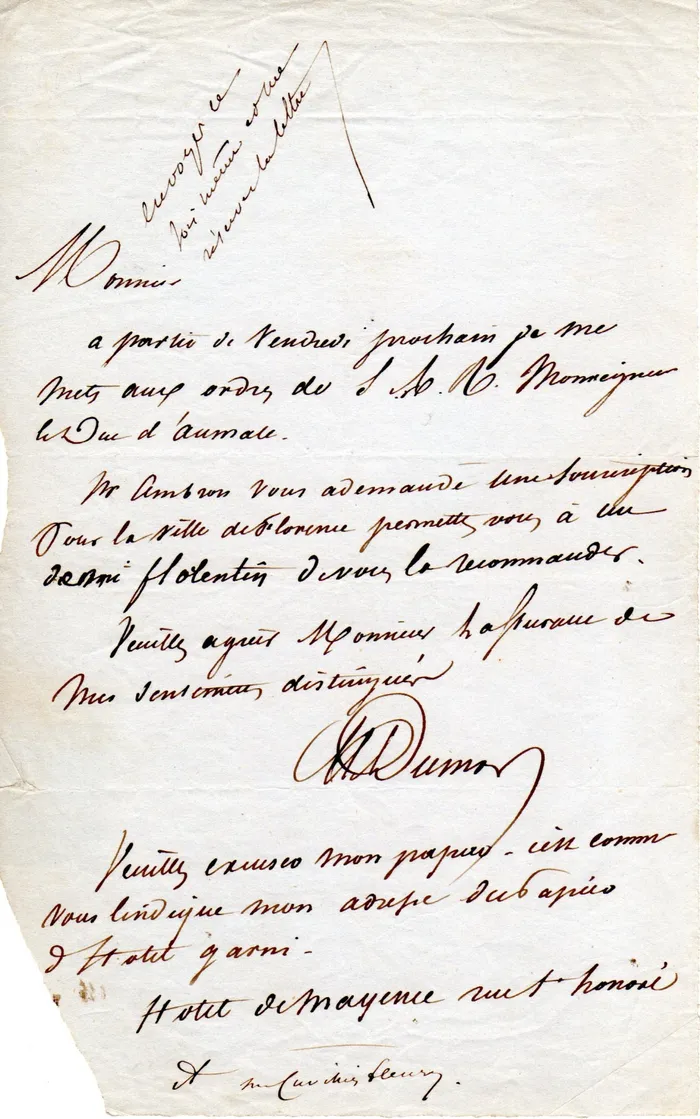 envoyer ce
soir même et me
réserver la lettre
Monsieur
a partir de Vendredi prochain je me
mets aux ordres de S A. R. Monseigneur
le Duc d'aumale.
Mr Ambron vous a demandé une Souscription
Pour la Ville de Florence permettez vous à un
demi florentin de vous la recommander.
Veuillez agréer Monsieur l'assurance de
mes sentiments distingués
Dumas
Veuillez excuser mon papier - c'est comme
vous l'indique mon adresse du papier
d'Hotel garni -
Hotel de Mayence rue St honoré
A mr Cuvillier fleury.